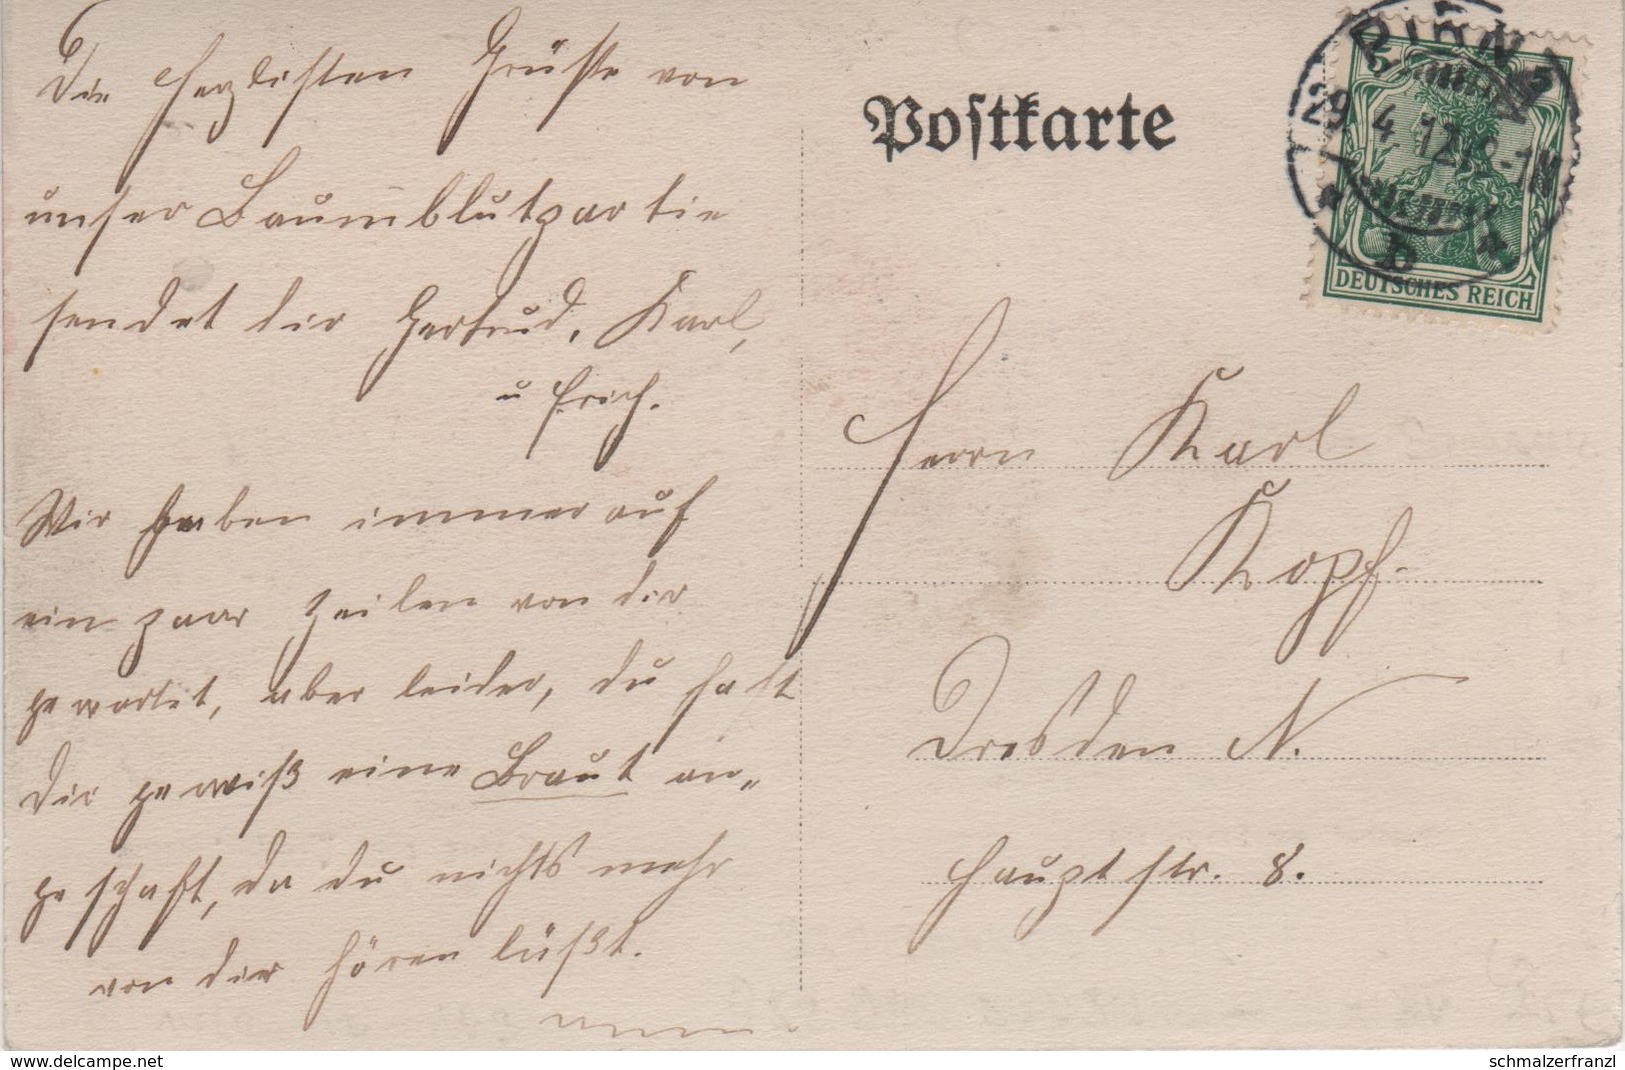 Die herzlichsten Grüße von
unser Baumblütpartie
sendet dir Gertrud, Karl,
u Erich.
Wir haben immer auf
ein paar Zeilen von dir
gewartet, aber leider, du hast
dir gewiß eine Braut an„
geschaft, da du nichts mehr
von dir hören läßt.
Postkarte
PIRNA
29.4.12.12-1N
* b *
DEUTSCHES REICH
Herrn Karl
Kopf.
Dresden N.
Hauptstr. 8.
https://www.delcampe.net
schmalzerfranzl